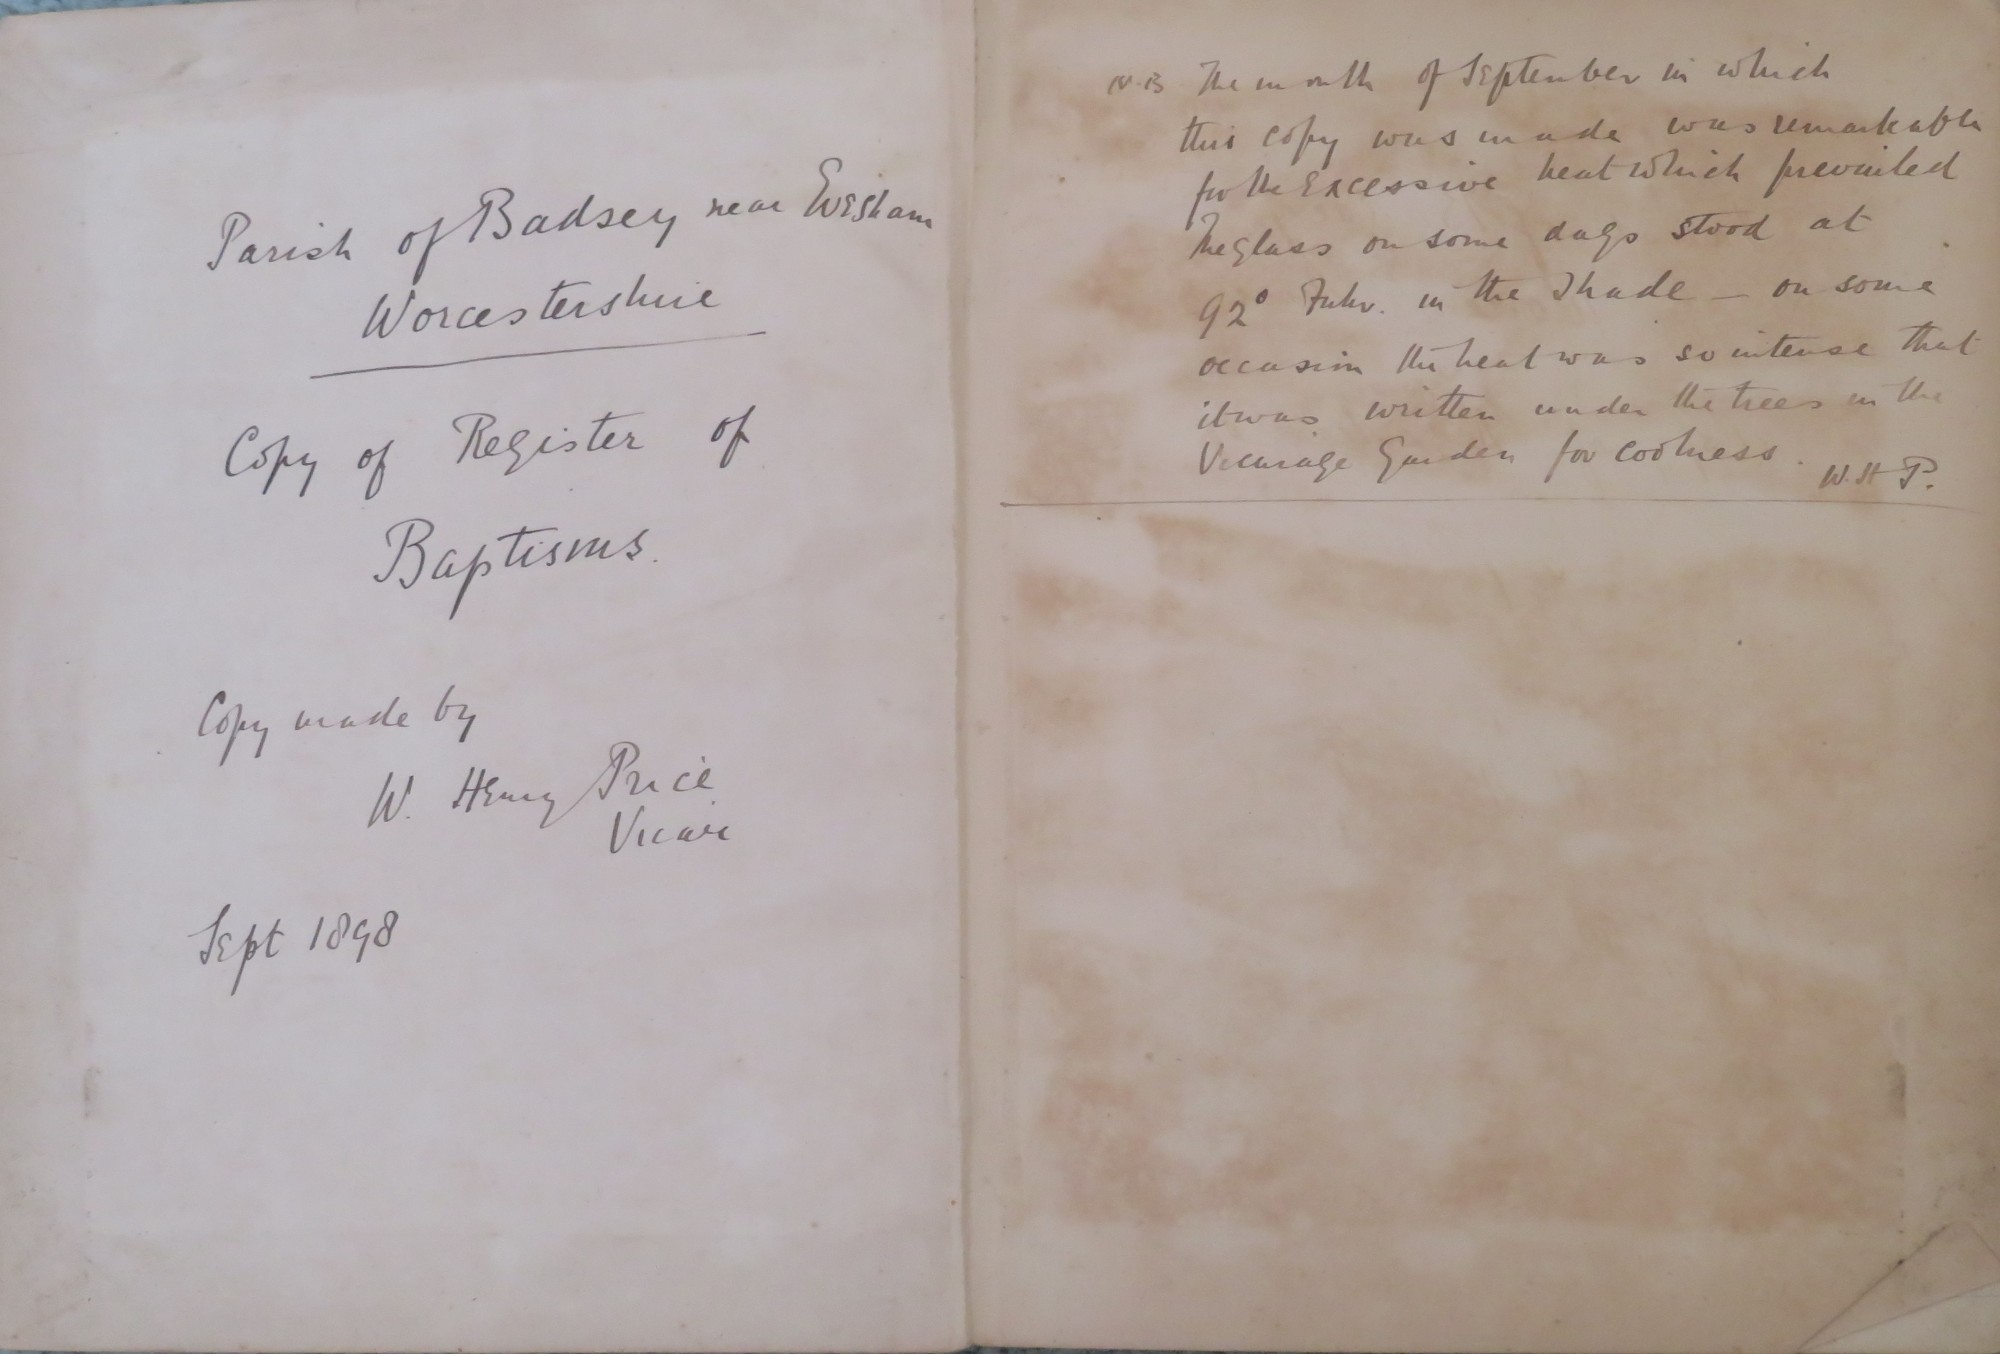 Parish of Badsey near Evesham
Worcestershire
Copy of Register of
Baptisms.
Copy made by
W. Henry Price
Vicar
Sept 1898
N.B The month of September in which
this copy was made was remarkable
for the Excessive heat which prevailed
The glass on some days stood at
92° Fahr. in the Shade – on some
occasion the heat was so intense that
it was written under the trees in the
Vicarage Garden for coolness.
W. H P.